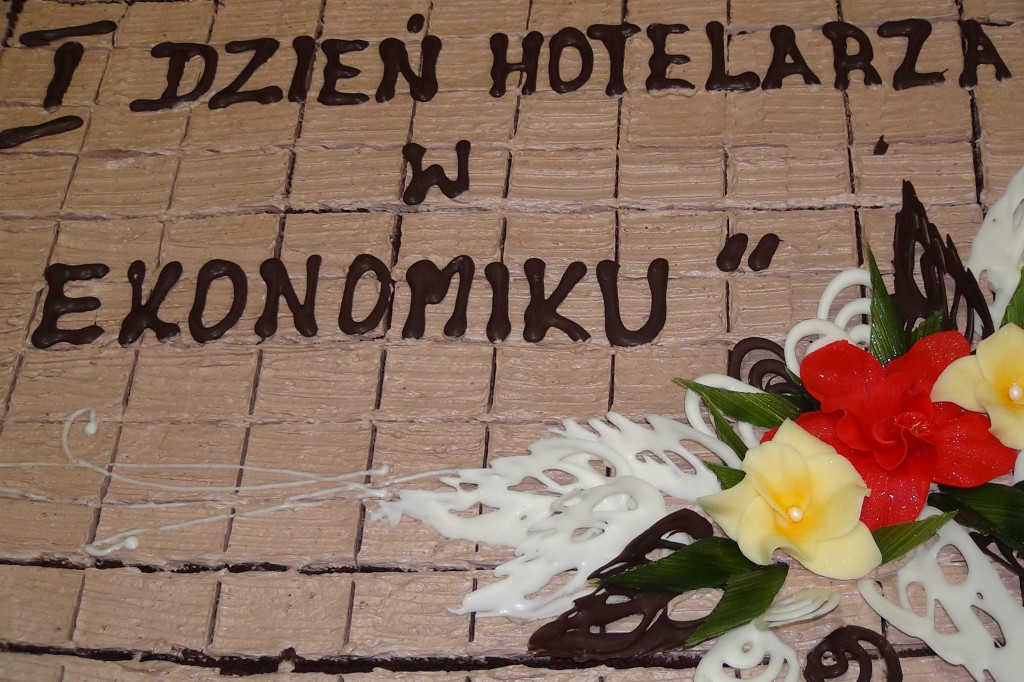 I DZIEŃ HOTELARZA
W
EKONOMIKU"